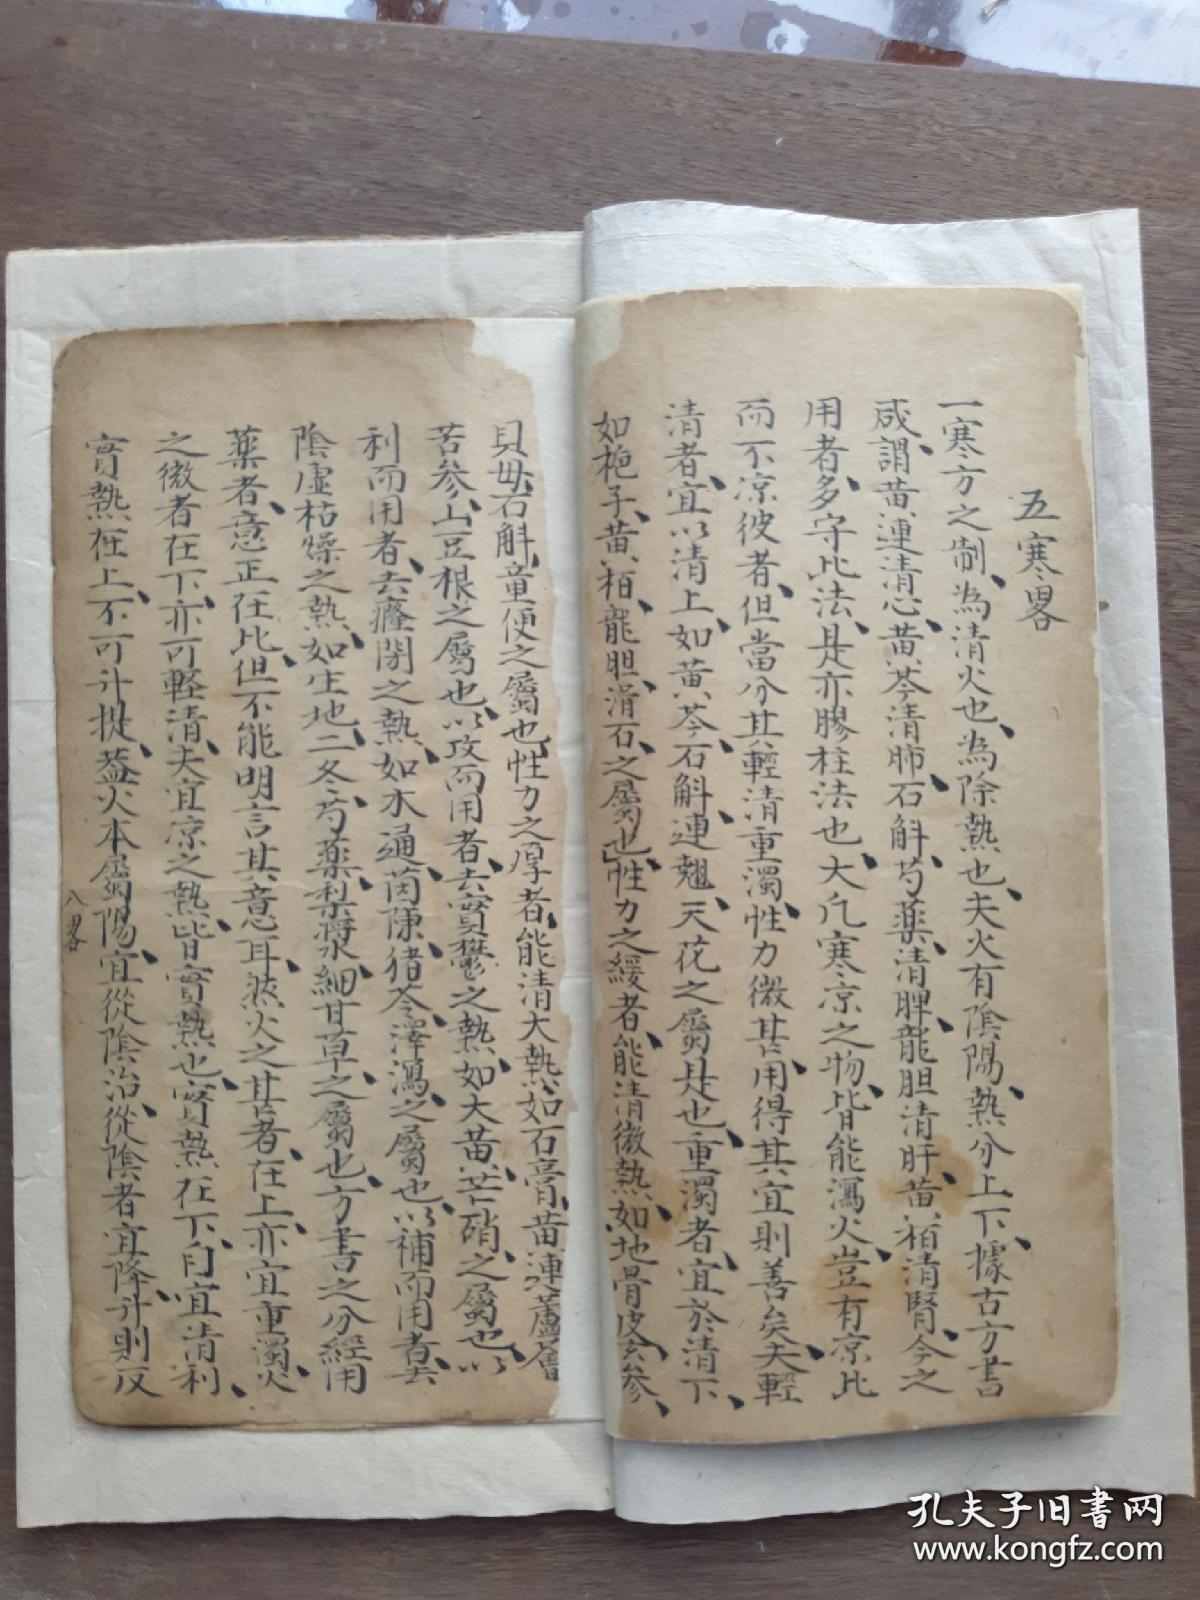 五寒畧
一寒方之制為清火也為除熱也夫火有陰陽熱分上下據古方書
咸謂黄連清心黄芩清肺石斛芍藥清脾龍胆清肝黄栢清腎今之
用者多守此法是亦膠柱法也大凡寒凉之物皆能瀉火豈有凉此
而不凉彼者但當分其輕清重濁性力微甚用得其宜則善矣夫輕
清者宜以清上如黄芩石斛連翹天花之屬是也重濁者宜於清下
如梔子黄栢龍胆滑石之屬也性力之緩者能清微熱如地骨皮玄參
貝母石斛童便之屬也性力之厚者能清大熱如石膏黄連蘆薈
苦參山豆根之屬也以攻而用者去實鬱之熱如大黄芒硝之屬也以
利而用者去癃閉之熱如木通茵陳猪苓澤瀉之屬也以補而用者去
陰虛枯燥之熱如生地二冬芍藥梨漿細甘草之屬也方書之分經用
藥者意正在此但不能明言其意耳然火之甚者在上亦宜重濁火
之微者在下亦可輕清夫宜凉之熱皆實熱也實熱在下自宜清利
實熱在上不可升提葢火本屬陽宜從陰治從陰者宜降升則反
八畧
孔夫子旧書网
www.kongfz.com